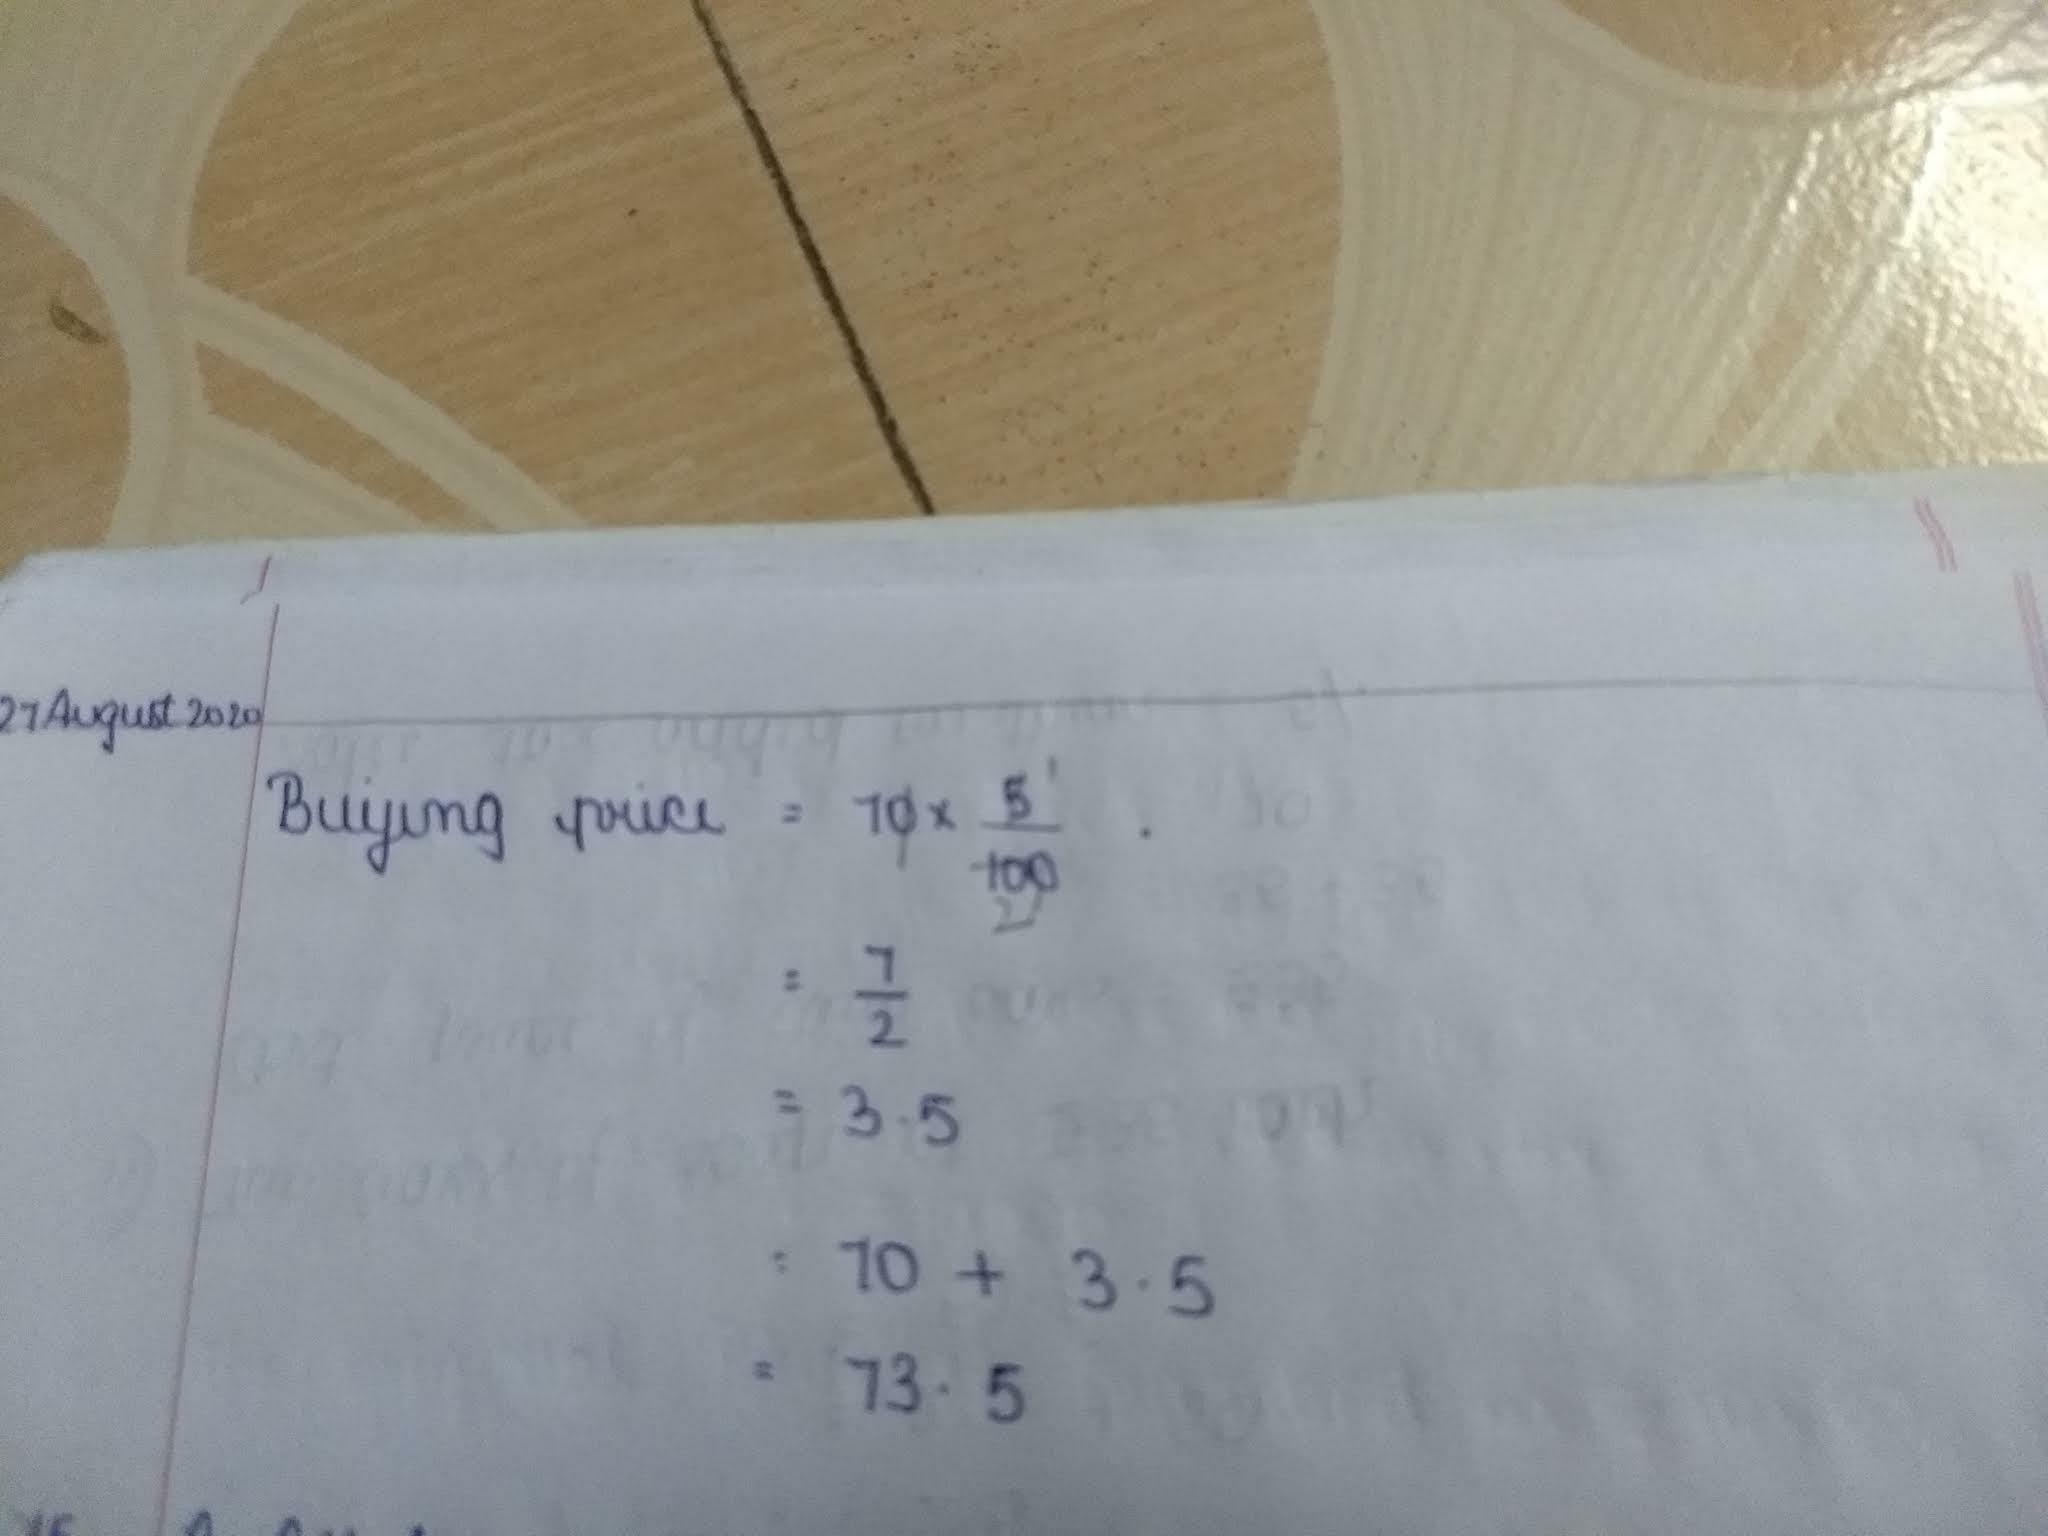 27 August 2020
Buying price = 70 × 5/100 1 2
= 7/2
= 3.5
= 70 + 3.5
= 73.5